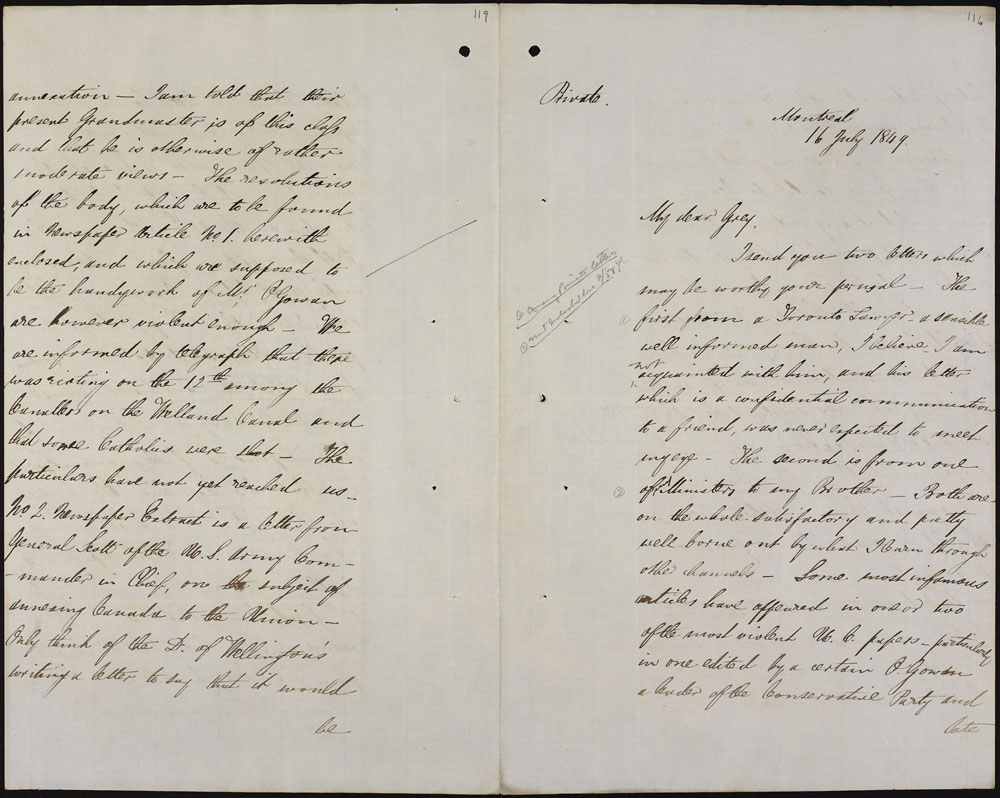 119
annexation — I am told that their
present Grandmaster is of this class
and that he is otherwise of rather
moderate views — The resolutions
of the body, which are to be found
in Newspaper Article No. 1. herewith
enclosed, and which are supposed to
be the handywork of Mr. O'Gowan
are however violent enough — We
are informed by telegraph that there
was rioting on the 12th among the
Canallers on the Welland Canal and
that some Catholics were shot — The
particulars have not yet reached us —
No 2. Newspaper Extract is a letter from
General Scott of the U. S. Army Com-
-mander in Chief, on the subject of
annexing Canada to the Union —
Only think of the D. of Wellington's
writing a letter to say that it would
be
116
Private.
Montreal
16 July 1849.
My dear Grey.
I send you two letters which
may be worthy your perusal — The
first from a Toronto Lawyer a sensible
well informed man, I believe I am
not
acquainted with him, and his letter
which is a confidential communication
to a friend, was never expected to meet
my eye — The second is from one
of Ministers to my Brother — Both are
on the whole satisfactory and pretty
well borne out by what I learn through
other channels — Some most infamous
articles have appeared in one or two
of the most violent U. C. papers — particularly
in one edited by a certain O. Gowan
a leader of the Conservative Party and
late